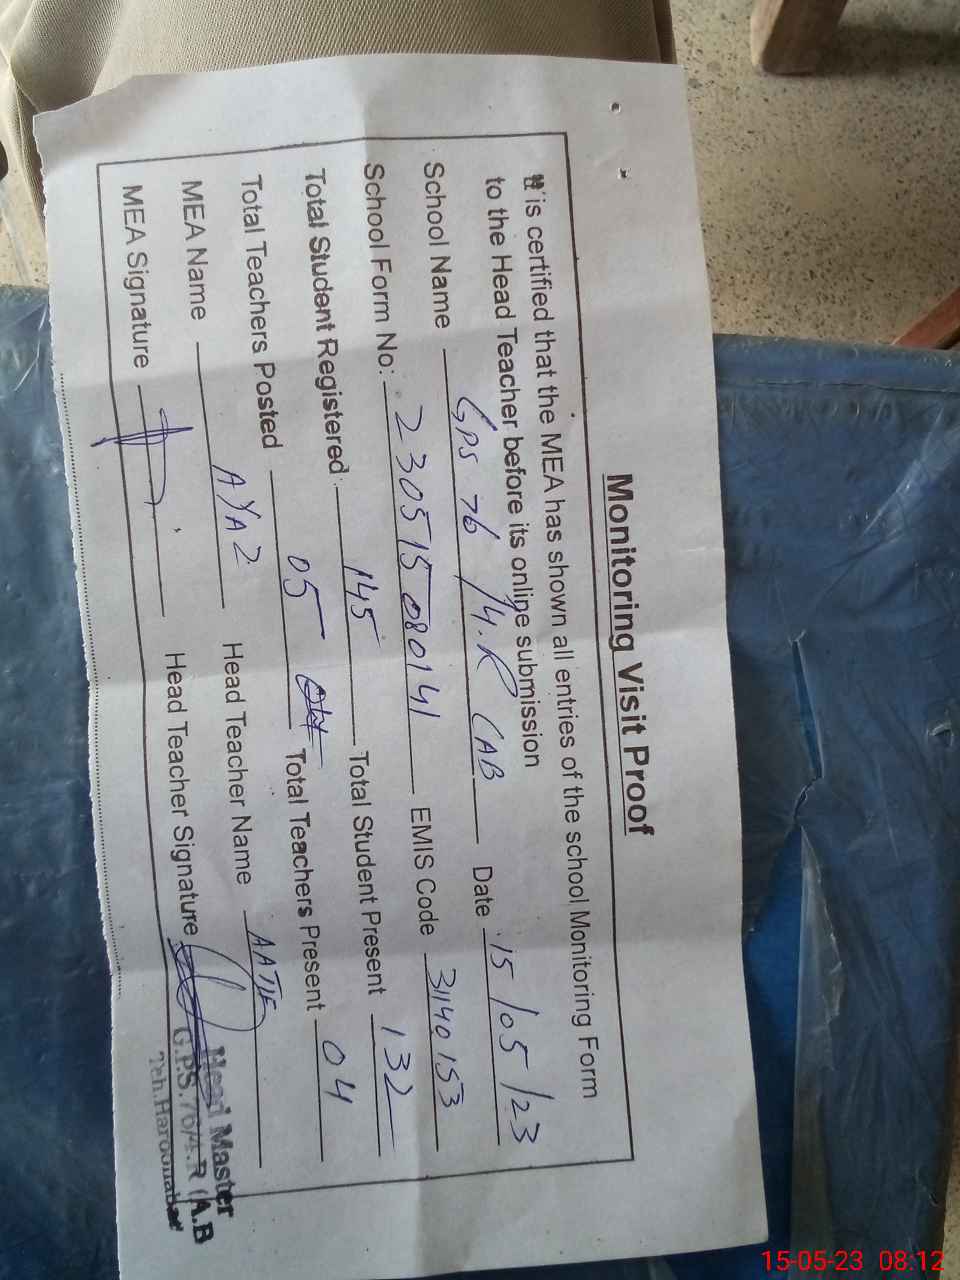 Monitoring Visit Proof
It is certified that the MEA has shown all entries of the school Monitoring Form
to the Head Teacher before its online submission
School Name GPS 76/4.R (AB Date 15/05/23
School Form No: 230515080141 EMIS Code 31140153
Total Student Registered: 145 Total Student Present 132
Total Teachers Posted 05 Total Teachers Present 04
MEA Name AYAZ Head Teacher Name AATIF
MEA Signature Head Teacher Signature
Head Master
G.P.S.76/4.R (A.B
Teh.Haroonabad
15-05-23 08:12